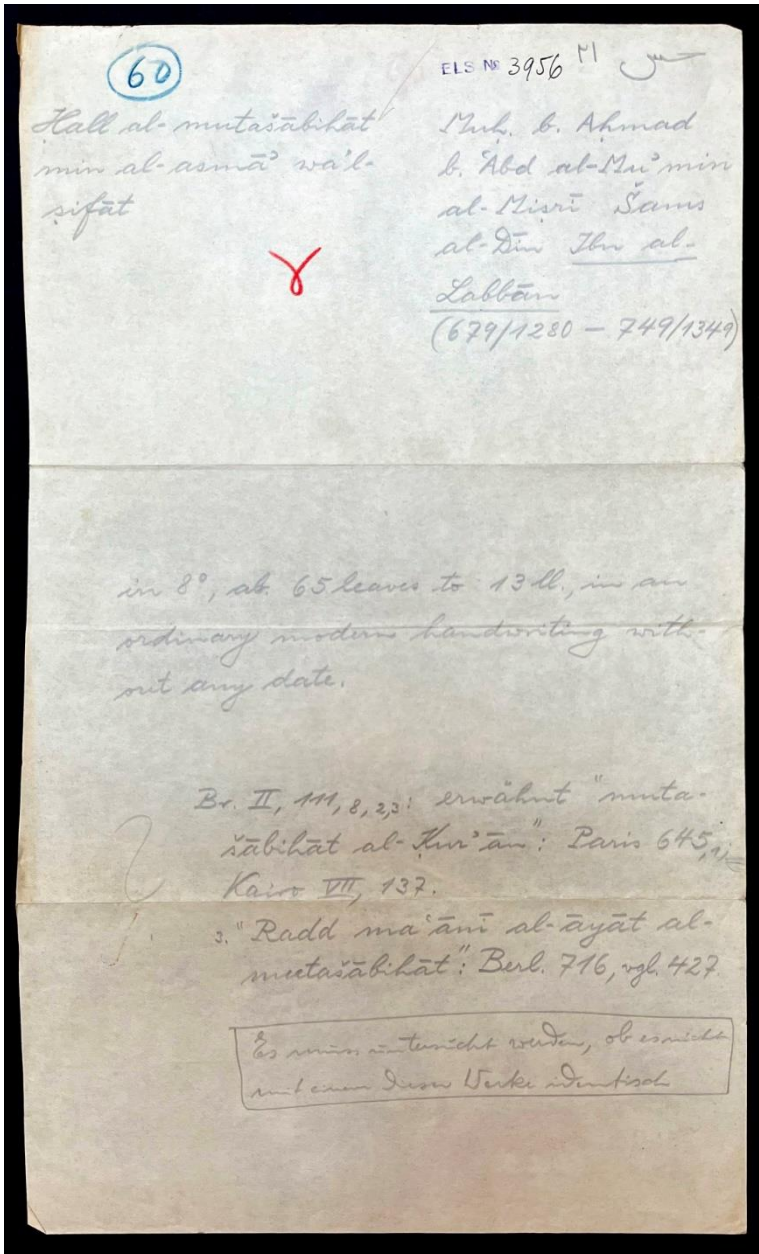 60
ELS No 3956
Ḥall al-mutašābihāt
min al-asmāʾ waʾl-
ṣifāt
Muḥ. b. Aḥmad
b. ʿAbd al-Muʾmin
al-Miṣrī Šams
al-Dīn Ibn al-
Labbān
(679/1280 – 749/1349)
in 8°, ab. 65 leaves to 13 ll., in an
ordinary modern handwriting with-
out any date.
Br. II, 111, 8, 2,3: erwähnt "muta-
šābihāt al-Ḳurʾān": Paris 645,
Kairo VII, 137.
3. "Radd maʿānī al-āyāt al-
mutašābihāt": Berl. 716, vgl. 427
Es muss untersucht werden, ob es nicht
mit einem dieser Werke identisch